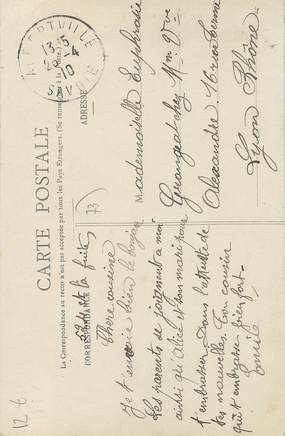 CARTE POSTALE
La Correspondance au recto n'est pas acceptée par tous les Pays Etrangers. (Se renseigner à la Poste.)
CORRESPONDANCE
ADRESSE
ALBERTVILLE
SAVOIE
73
et la fuite,
Chère cousine
Je t'envoie bien le bonjour
Les parents se joignent à moi
ainsi que Alice et son mari nous
t'embrasser. Dans l'attente de
tes nouvelles Ton cousin
qui t'embrasse bien fort.
Emile
Mademoiselle Euphrasie
Grangeat chez Mme Vve
Alexandre. 16 rue Terme
Lyon Rhône.
12 €